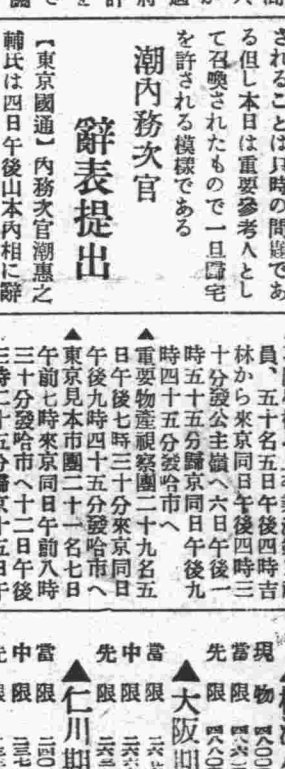 されることは只時の問題であ
る但し本日は重要參考人とし
て召喚されたもので一旦歸宅
を許される模樣である
潮內務次官
辭表提出
【東京國通】內務次官潮惠之
輔氏は四日午後山本內相に辭
員、五十名五日午後四時吉
林から來京同日午後四時三
十分發公主嶺へ六日午後一
時五十五分歸京同日午後九
時四十五分發哈市へ
▲重要物產視察團二十九名五
日午後七時三十分來京同日
午後九時四十五分發哈市へ
▲東京見本市團二十一名七日
午前七時來京同日午前八時
三十分發哈市へ十二日午後
現物
當限
先限
▲大阪期
當限
中限
先限
▲仁川期
當限
中限
先限